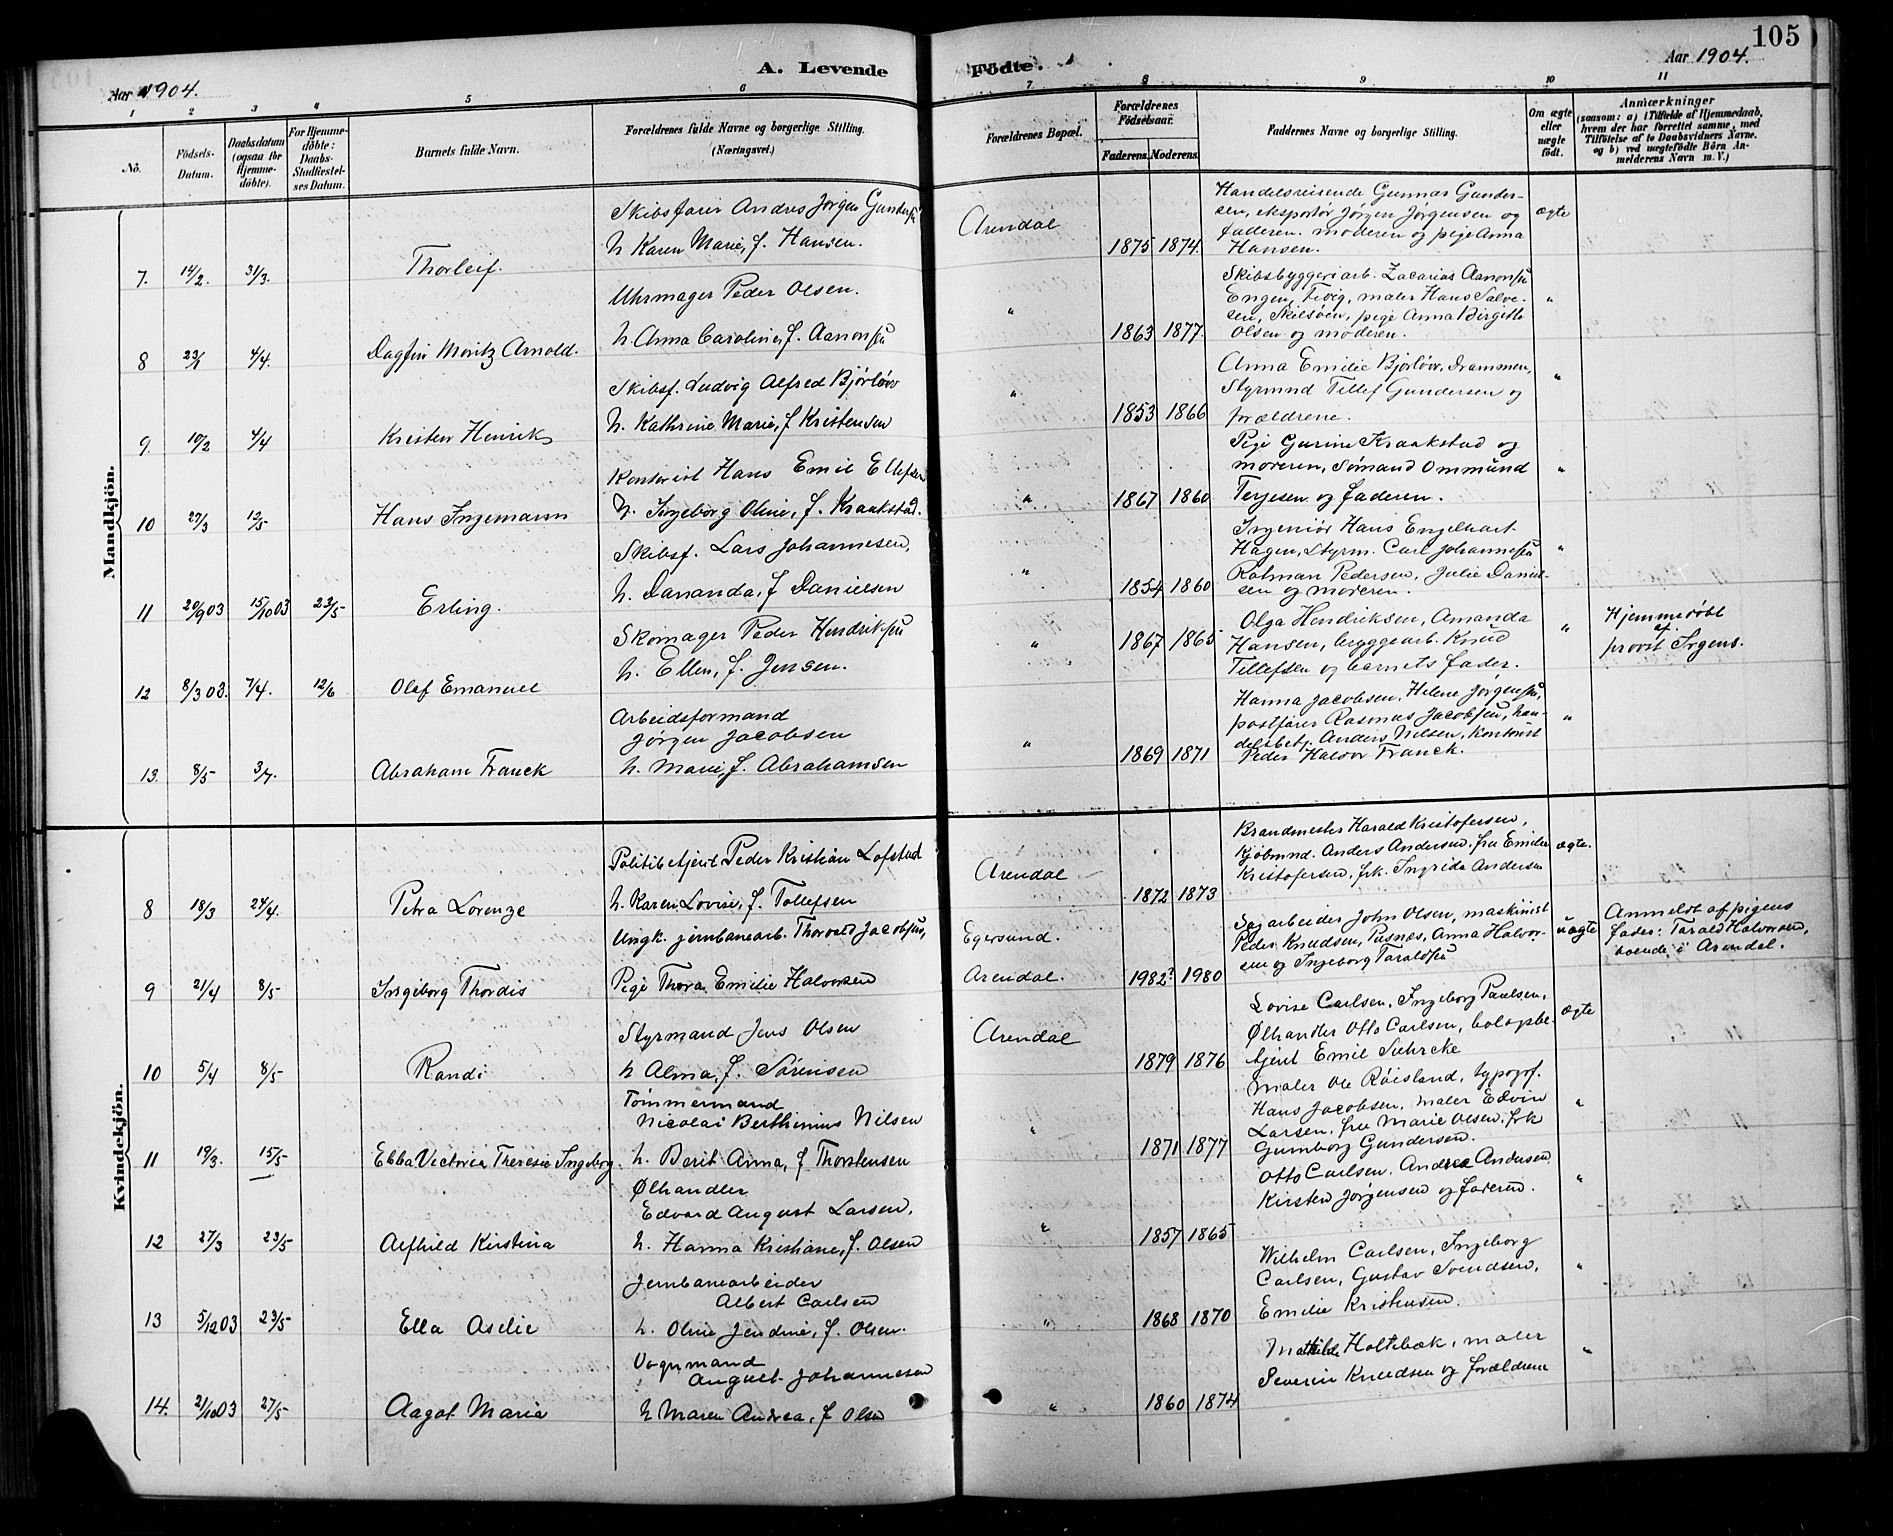 105
Aar 1904.
A. Levende
Fødte.
Aar 1904.
1
2
3
4
5
6
7
8
9
10
11
No.
Födsels-
Datum.
Daabsdatum
(ogsaa for
Hjemme-
döbte).
For Hjemme-
döbte:
Daabs-
Stadfæstel-
ses Datum.
Barnets fulde Navn.
Forældrenes fulde Navne og borgerlige Stilling.
(Næringsvei.)
Forældrenes Bopæl.
Forældrenes
Födselsaar.
Faderens.
Moderens.
Faddernes Navne og borgerlige Stilling.
Om ægte
eller
uægte
født.
Anmærkninger
(saasom: a) i Tilfælde af Hjemmedaab,
hvem der har forrettet samme, med
Tilföielse af to Daabsvidners Navne.
og b) ved uægtefödte Börn An-
melderens Navn m. V.)
Mandkjön.
7. 14/2. 31/3. Thorleif.
Skibsfører Andres Jørgen Gundersen
h. Karen Marie, f. Hansen.
Arendal 1875 1874.
Handelsreisende Gunnar Gunder-
sen, eksportør Jørgen Jørgensen og
faderen. moderen og pige Anna
Hansen.
ægte
8 23/1 4/4. Dagfin Moritz Arnold.
Uhrmager Peder Olsen.
h. Anna Caroline, f. Aanonsen
" 1863 1877
Skibsbyggeriarb. Zacarias Aanonsen
Engene, Fevig, maler Hans Salve-
sen, Skilsøen, pige Anna Birgitte
Olsen og moderen.
"
9. 10/2 4/4 Kristen Henrik
Skibsf. Ludvig Alfred Bjørløw
h. Kathrine Marie, f Kristensen
" 1853 1866
Anna Emilie Bjørløw, Drammen,
Styrmnd Tellef Gundersen og
forældrene.
"
10 27/3 12/5. Hans Ingemann
Kontorist Hans Emil Ellefsen
h. Ingeborg Oline, f. Kraakstad.
" 1867 1860
Pige Gurine Kraakstad og
moderen, Sømand Ommund
Terjesen og faderen.
"
11 20/9 03 15/10 03 23/5- Erling.
Skibsf. Lars Johannesen,
h. Dananda, f Danielsen
" 1854 1860
Ingeniør Hans Engelhart
Hagen, Styrm. Carl Johannesen
Rolman Pedersen, Julie Daniel-
sen og moderen.
"
12 8/3 03. 7/4. 12/6 Olaf Emanuel
Skomager Peder Hendriksen
h. Ellen, f. Jensen.
" 1867 1865
Olga Hendriksen, Amanda
Hansen, bryggearb. Knud
Tellefsen og barnets fader.
"
Hjemmedøbt
af
provst Irgens.
13. 8/5- 3/7. Abraham Franck
Arbeidsformand
Jørgen Jacobsen
h. Marie, f. Abrahamsen
" 1869 1871
Hanna Jacobsen, Helene Jørgensen,
postfører Rasmus Jacobsen, han-
delsbetj. Anders Nilsen, Kontorist
Peder Halvor Franck.
"
Kvindekjön.
8 18/3 24/4. Petra Lorenze
Politibetjent Peder Kristian Lofstad
h. Karen Lovise, f. Tollefsen
Arendal 1872 1873
Brandmester Harald Kristofersen,
Kjøbmnd. Anders Andersen, fru Emilie
Kristofersen, frk. Ingrida Andersen
ægte.
9 21/4 8/5- Ingeborg Thordis
Ungk. jernbanearb. Thorvald Jacobsen,
Pige Thora Emilie Halvorsen
Egersund.
Arendal. 1982? 1980
Sagarbeider John Olsen, maskinist
Peder Knudsen, Pusnæs, Anna Halvor-
sen og Ingeborg Taraldsen
uægte
Anmeldt af pigens
fader: Tarald Halvorsen,
boende i Arendal.
10 5/4 8/5- Randi
Styrmand Jens Olsen
h Alma, f. Sørensen
Arendal 1879 1876
Lovise Carlsen, Ingeborg Paulsen,
Ølhandler Otto Carlsen, bolagsbe-
tjent Emil Suhrcke
ægte
11 19/3. 15/5- Ebba Victoria Theresie Ingeborg.
Tømmermand
Nicolai Berthinius Nilsen
h. Berit Anna, f Thorstensen
" 1871 1877
Maler Ole Røisland, typogrf.
Hans Jacobsen, maler Edvin
Larsen, fru Marie Olsen, frk
Gunnborg Gundersen.
"
12 27/3 23/5- Alfhild Kirstina
Ølhandler
Edvard August Larsen,
h. Hanna Kristiane, f. Olsen
" 1857 1865
Otto Carlsen, Andrea Andersen,
Kirsten Jørgensen og faderen.
"
13 5/12 03 23/5- Ella Aselie
Jernbanearbeider
Albert Carlsen
h. Oline Jendine, f. Olsen.
" 1868 1870
Wilhelm Carlsen, Ingeborg
Carlsen, Gustav Svendsen,
Emilie Kristensen.
"
14. 21/10 03 27/5- Aagot Maria
Vognmand
August Johannesen
h Maren Andrea, f Olsen
" 1860 1874
Mathilde Holtebæk, maler
Severin Knudsen og forældrene
"